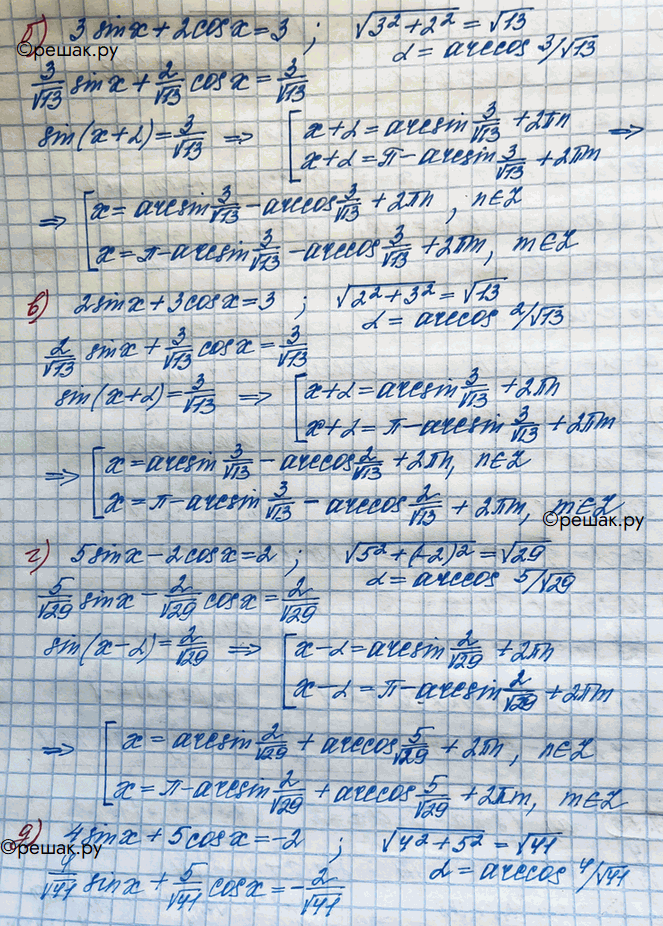 б) 3 sin x + 2 cos x = 3 ; √(3² + 2²) = √13
©решак.ру
α = arccos 3/√13
3/√13 sin x + 2/√13 cos x = 3/√13
sin(x + α) = 3/√13 ⇒ [ x + α = arcsin 3/√13 + 2πn
x + α = π − arcsin 3/√13 + 2πm ⇒
⇒ [ x = arcsin 3/√13 − arccos 3/√13 + 2πn, n∈Z
x = π − arcsin 3/√13 − arccos 3/√13 + 2πm, m∈Z
в) 2 sin x + 3 cos x = 3 ; √(2² + 3²) = √13
α = arccos 2/√13
2/√13 sin x + 3/√13 cos x = 3/√13
sin(x + α) = 3/√13 ⇒ [ x + α = arcsin 3/√13 + 2πn
x + α = π − arcsin 3/√13 + 2πm
⇒ [ x = arcsin 3/√13 − arccos 2/√13 + 2πn, n∈Z
x = π − arcsin 3/√13 − arccos 2/√13 + 2πm, m∈Z
©решак.ру
г) 5 sin x − 2 cos x = 2 ; √(5² + (−2)²) = √29
α = arccos 5/√29
5/√29 sin x − 2/√29 cos x = 2/√29
sin(x − α) = 2/√29 ⇒ [ x − α = arcsin 2/√29 + 2πn
x − α = π − arcsin 2/√29 + 2πm
⇒ [ x = arcsin 2/√29 + arccos 5/√29 + 2πn, n∈Z
x = π − arcsin 2/√29 + arccos 5/√29 + 2πm, m∈Z
д) 4 sin x + 5 cos x = −2 ; √(4² + 5²) = √41
©решак.ру
α = arccos 4/√41
4/√41 sin x + 5/√41 cos x = − 2/√41